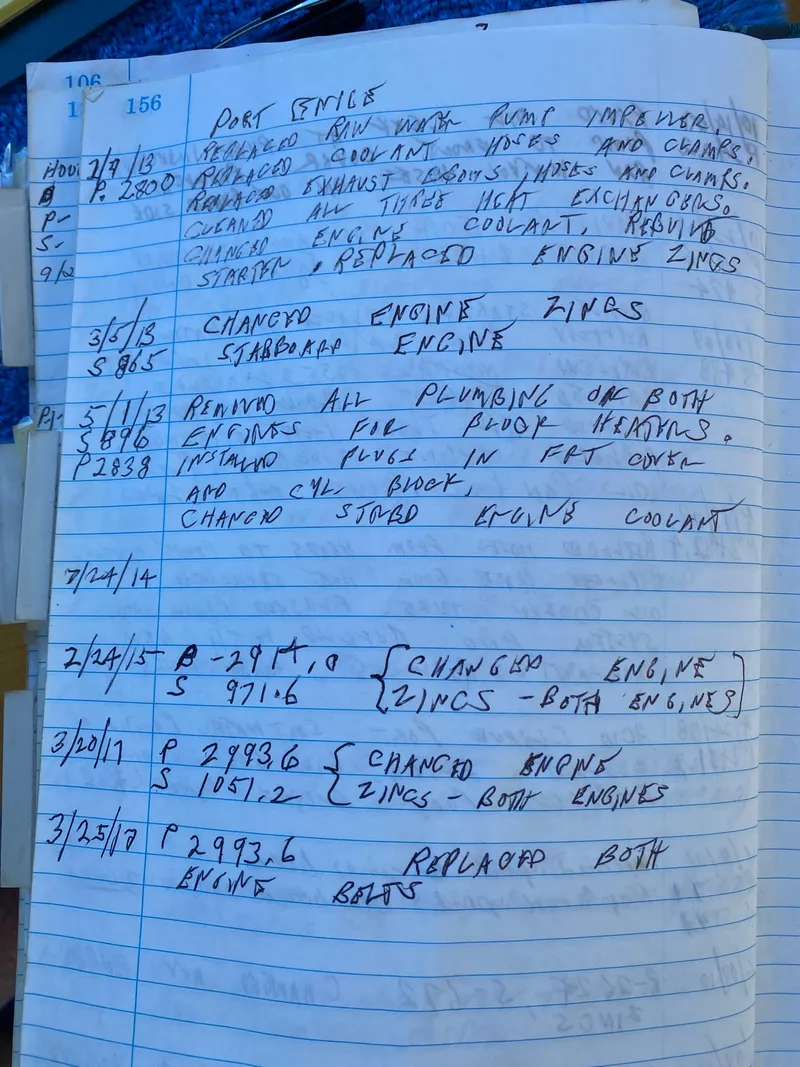 106
156
PORT ENICE
2/7/13 REPLACED RAW WATER PUMP IMPELLER.
P. 2800 REPLACED COOLANT HOSES AND CLAMPS.
REPLACED EXHAUST ELBOWS, HOSES AND CLAMPS.
CLEANED ALL THREE HEAT EXCHANGERS.
CHANGED ENGINE COOLANT, REBUILD
STARTER. REPLACED ENGINE ZINGS
3/5/13 CHANGED ENGINE ZINGS
S 865 STARBOARD ENGINE
5/1/13 REMOVED ALL PLUMBING ON BOTH
S 896 ENGINES FOR BLOCK HEATERS.
P 2838 INSTALLED PLUGS IN FRT COVER
AND CYL BLOCK,
CHANGED STRBD ENGINE COOLANT
2/24/14
2/24/15 P - 2914.0 { CHANGED ENGINE
S 971.6 { ZINGS - BOTH ENGINES
3/20/17 P 2993.6 { CHANGED ENGINE
S 1051.2 { ZINGS - BOTH ENGINES
3/25/17 P 2993.6 REPLACED BOTH
ENGINE BELTS